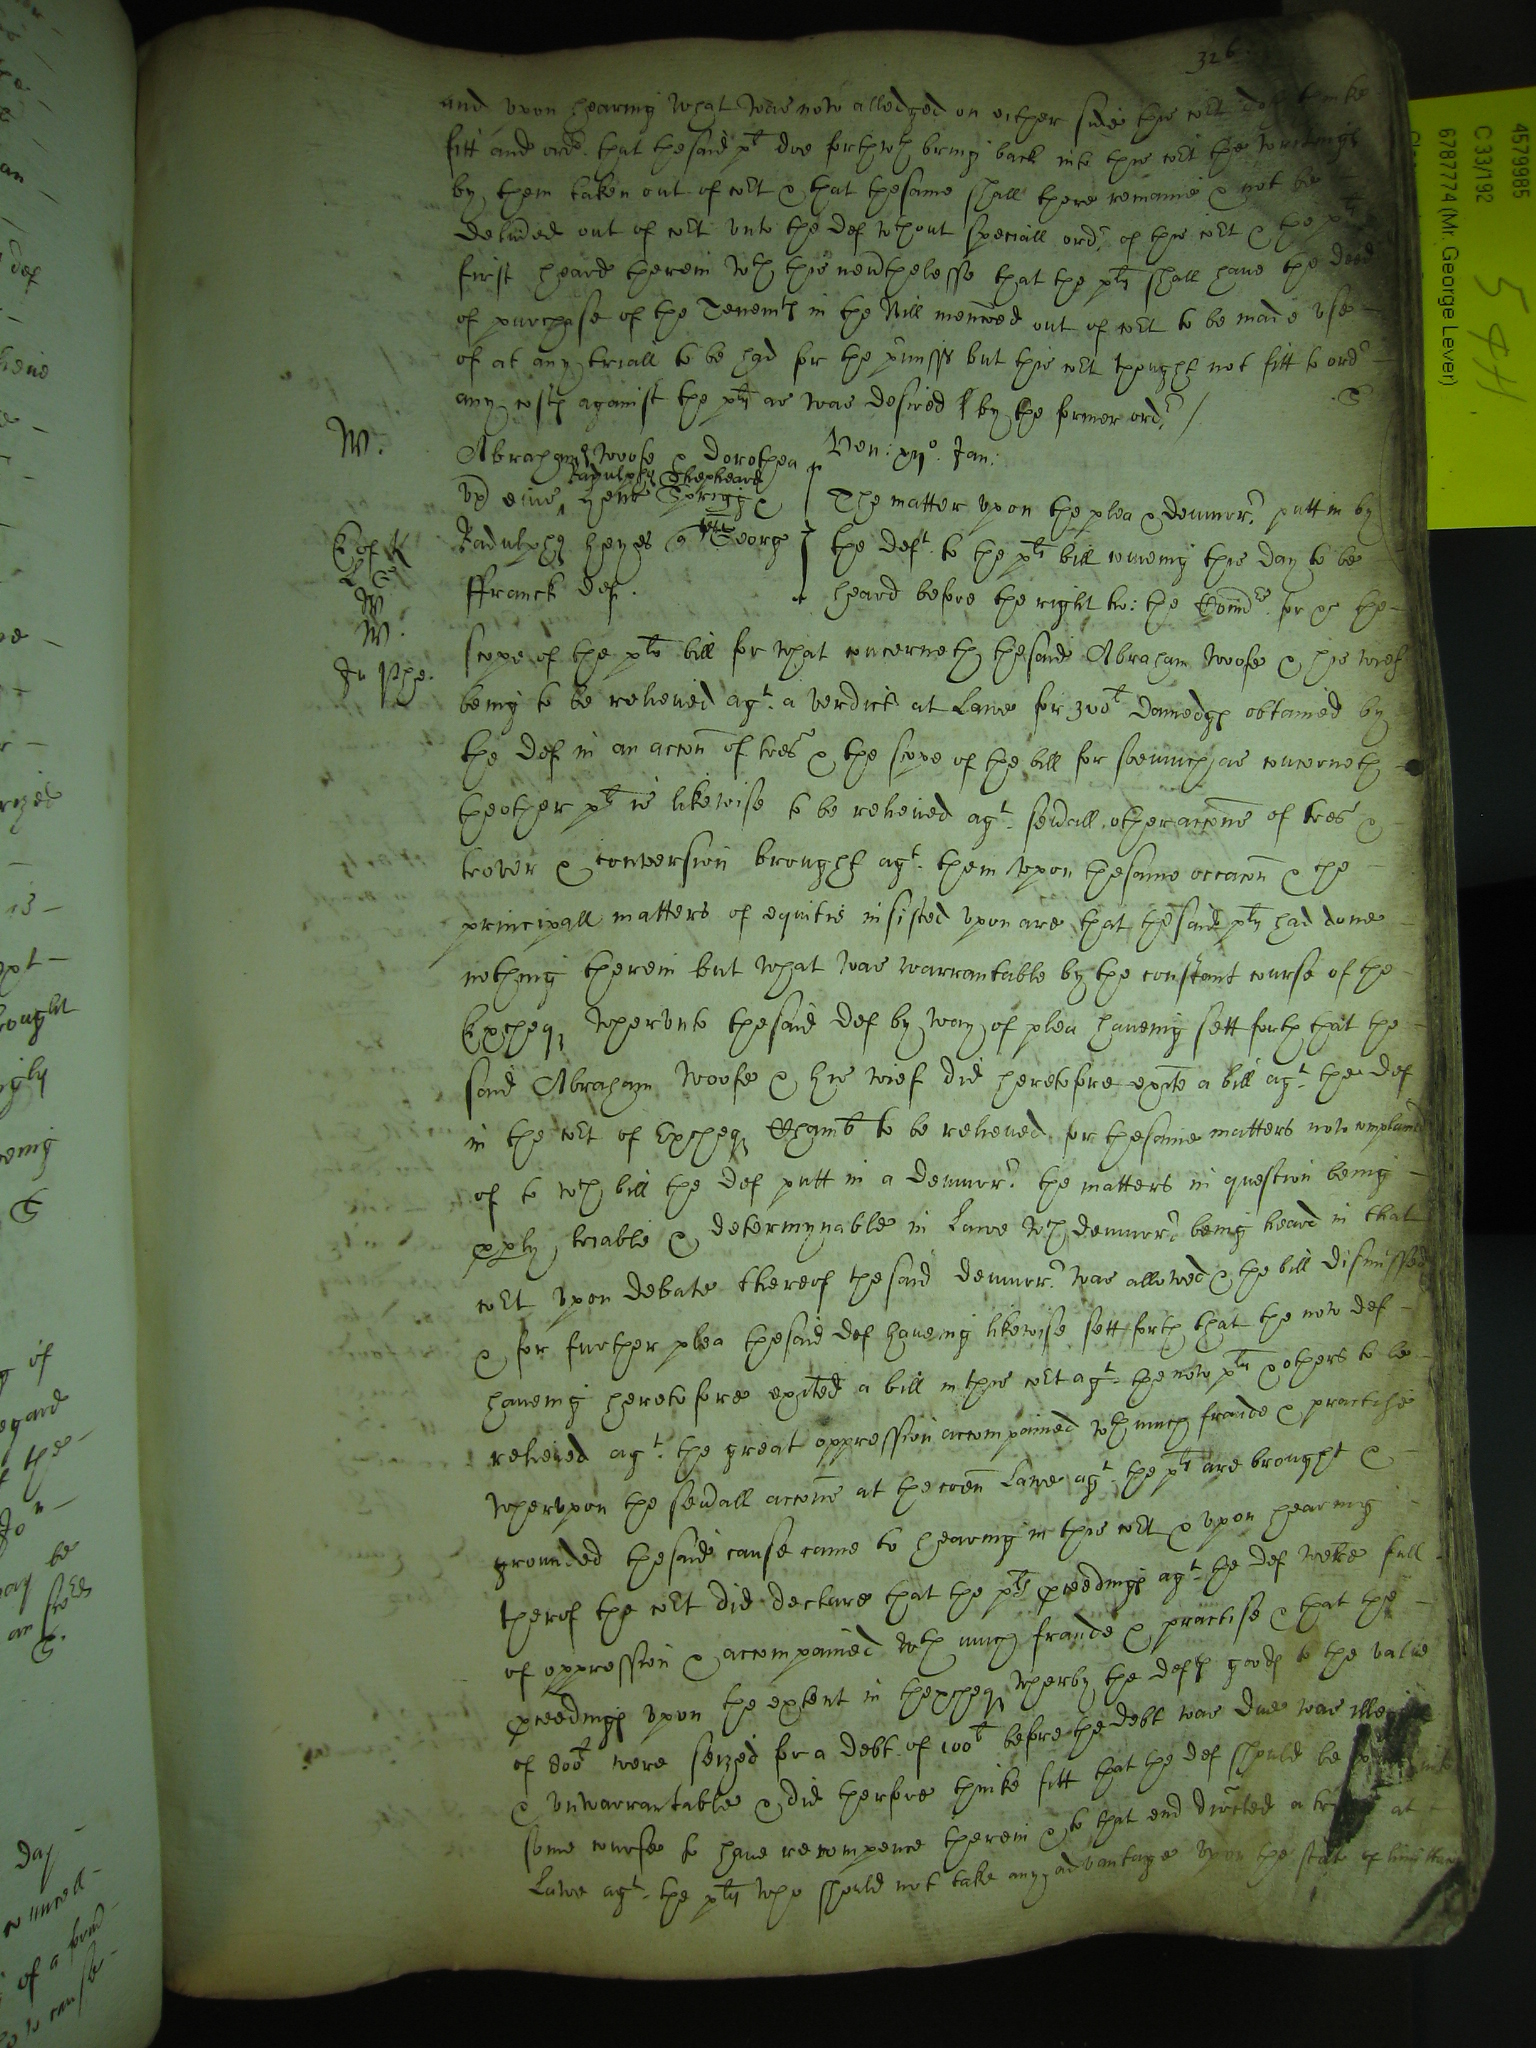 326
and upon hearing what was now alledged on either side this cort doth thinke
fitt and ordr that thesaid plt doe forthwth bring back into this cort the writings
by them taken out of cort & that thesame shall there remaine & not be
delivded out of cort unto the def wthout speciall ordr of this cort & the plts
first heard therein wth this nevthelesse that the plts shall have the deed
of purchase of the Tenemts in the Bill menconed out of cort to be made use
of at any triall to be had for the prmisss but this cort thought not fitt to ordr
any costs against the plts as was desired & by the former ordr / S
W. Abraham Woofe & Dorothea Ven: xvio Jan:
ux eius Radulphus Shepheard
Henr Sprigg & The matter upon the plea & demurrr putt in by
E of K Radulphus Heyes qtes George the deft to the plts bill coming this day to be
ffranck def. heard before the right ho: the Comrs for &c the
W.
W.
scope of the plts bill for what concerneth thesaid Abraham Woofe & his wief
Jn Phe. being to be relieved agt a verdict at Lawe for 300l damedgs obtained by
the def in an accon of tres & the scope of the bill for soemuch as concerneth
theother plts is likewise to be relieved agt sevall other accons of tres &
trover & conversion brought agt them upon thesame occacon & the
principall matters of equitie insisted upon are that thesaid plts had done
nothing therein but what was warrantable by the constant course of the
Excheqr wherunto thesaid def by way of plea haveing sett forth that the
said Abraham Woofe & his wief did heretofore exite a bill agt the def
in the cort of Excheqr Chambr to be relieved for thesame matters now complained
of to wch bill the def putt in a demurrr the matters in question being
pply triable & determynable in Lawe wch demurrr being heard in that
cort upon debate thereof thesaid demurrr was allowed & the bill dismissed
& for further plea thesaid def haveing likewise sett forth that the now def
haveing heretofore exited a bill in this cort agt the now plts & others to be
relieved agt the great oppression accompained wth much fraude & practise
wherupon the sevall accons at the coen Lawe agt the plts are brought &
grounded thesaid cause came to hearing in this cort & upon hearing
therof the cort did declare that the plts pceedings agt the def weere full
of oppression & accompained wth much fraude & practise & that the
pceedings upon the extent in thexcheqr wherby the defts goods to the value
of 800l were seized for a debt of 100l before the debt was due was
& unwarrantable & did therfore thinke fitt that the def should be
some course to have recompence therein & to that end directed a at
Lawe agt the plts who should not take any advantage upon the statute of
4579985
C 33/192
6787774 (Mr. George Lever)
def
an
brought
of
regard
the
be
day
councell
of a